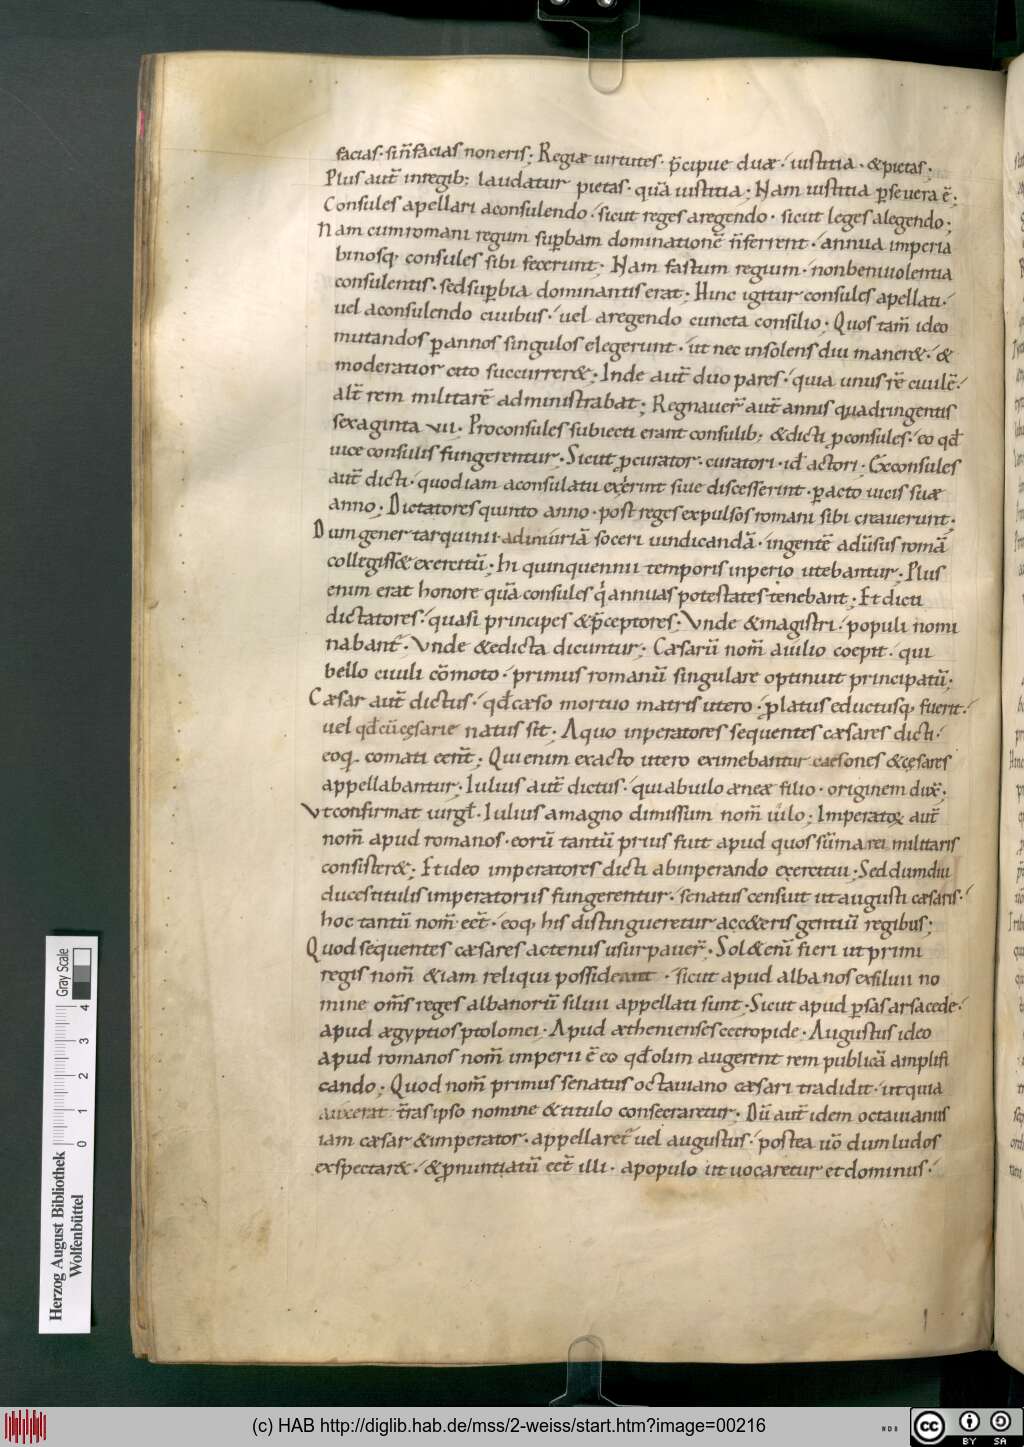 facias · sin̄ facias non eris ; Regiæ uirtutes · p̄cipue duæ · iustitia · & pietas ;
Plus aut̄ in regib; laudatur pietas · quā iustitia ; Nam iustitia ꝑse uera ē ;
Consules apellari aconsulendo · sicut reges aregendo · sicut leges alegendo ;
Nam cum romani regum suꝑbam dominationē n̄ ferrent · annua imperia
binosq· consules sibi fecerunt ; Nam fastum regium · non beniuolentia
consulentis · sed suꝑbia dominantis erat · Hinc igitur consules apellati ·
uel aconsulendo ciuibus · uel aregendo cuncta consilio ; Quos tam̄ ideo
mutandos ꝑ annos singulos elegerunt · ut nec insolens diu maner& · &
moderatior cito succurrer& ; Inde aut̄ duo pares · quia unus rē ciuilē ·
alt̄ rem militarē administrabat ; Regnauer̄ aut̄ annis quadringentis
sexaginta vii · Proconsules subiecti erant consulib; & dicti ꝓconsules · eo qđ
uice consulis fungerentur · Sicut ꝓcurator · curatori · iđ actori · Exconsules
aut̄ dicti · quod iam aconsulatu exierint siue discesserint · ꝑacto uicis suæ
anno ; Dictatores quinto anno · post reges expulsos romani sibi creauerunt ·
Dum gener tarquinii · ad iniuriā soceri uindicandā · ingentē adūsus romā
collegiss& exercitū ; hi quinquennii temporis inperio utebantur ; Plus
enim erat honore quā consules q' annuas potestates tenebant ; Et dicti
dictatores · quasi principes & p̄ceptores ; Vnde & magistri · populi nomi
nabant · Vnde & edicta dicuntur ; Cæsarū nom̄ aiulio coepit · qui
bello ciuili cōmoto · primus romanū singulare optinuit principatū ;
Cæsar aut̄ dictus · qđ cæso mortuo matris utero · ꝓlatus eductusq· fuerit ·
uel qđ cū cęsarie natus sit · Aquo inperatores sequentes cæsares dicti ·
eoq· comati eent̄ ; Qui enim exacto utero eximebantur caesones & cęsares
appellabantur ; Iulius aut̄ dictus · qui abiulo æneæ filio · originem dux̄ ;
Vt confirmat uirgł · Iulius amagno dimissum nom̄ iulo ; Imperator aut̄
nom̄ apud romanos · eorū tantū prius fuit apud quos sūma rei militaris
consister& ; Et ideo imperatores dicti abinperando exercitui ; Sed dum diu
duces titulis imperatoriis fungerentur · senatus censuit ut augusti cæsaris ·
hoc tantū nom̄ eēt · eoq· his distingueretur acc&eris gentiū regibus ;
Quod sequentes cæsares actenus usurpauer̄ · Sol& enī fieri ut primi
regis nom̄ & iam reliqui possideant · sicut apud albanos ex siluii no
mine om̄s reges albanorū siluii appellati sunt · Sicut apud ꝑsas arsacede ·
apud ægyptios ptolomei · Apud æthenienses cecropide · Augustus ideo
apud romanos nom̄ imperii ē eo qđ olim augerent rem publicā amplifi
cando ; Quod nom̄ primus senatus octauiano cæsari tradidit · ut quia
auxerat t̄ras ipso nomine & titulo consecraretur · Dū aut̄ idem octauianus
iam cæsar & imperator · appellaret̄ uel augustus · postea uō dum ludos
exspectar& · & ꝓnuntiatū eēt illi · apopulo ut uocaretur et dominus ·
Herzog August Bibliothek
Wolfenbüttel
0 1 2 3 4
Gray Scale
(c) HAB http://diglib.hab.de/mss/2-weiss/start.htm?image=00216
NDB
cc BY SA